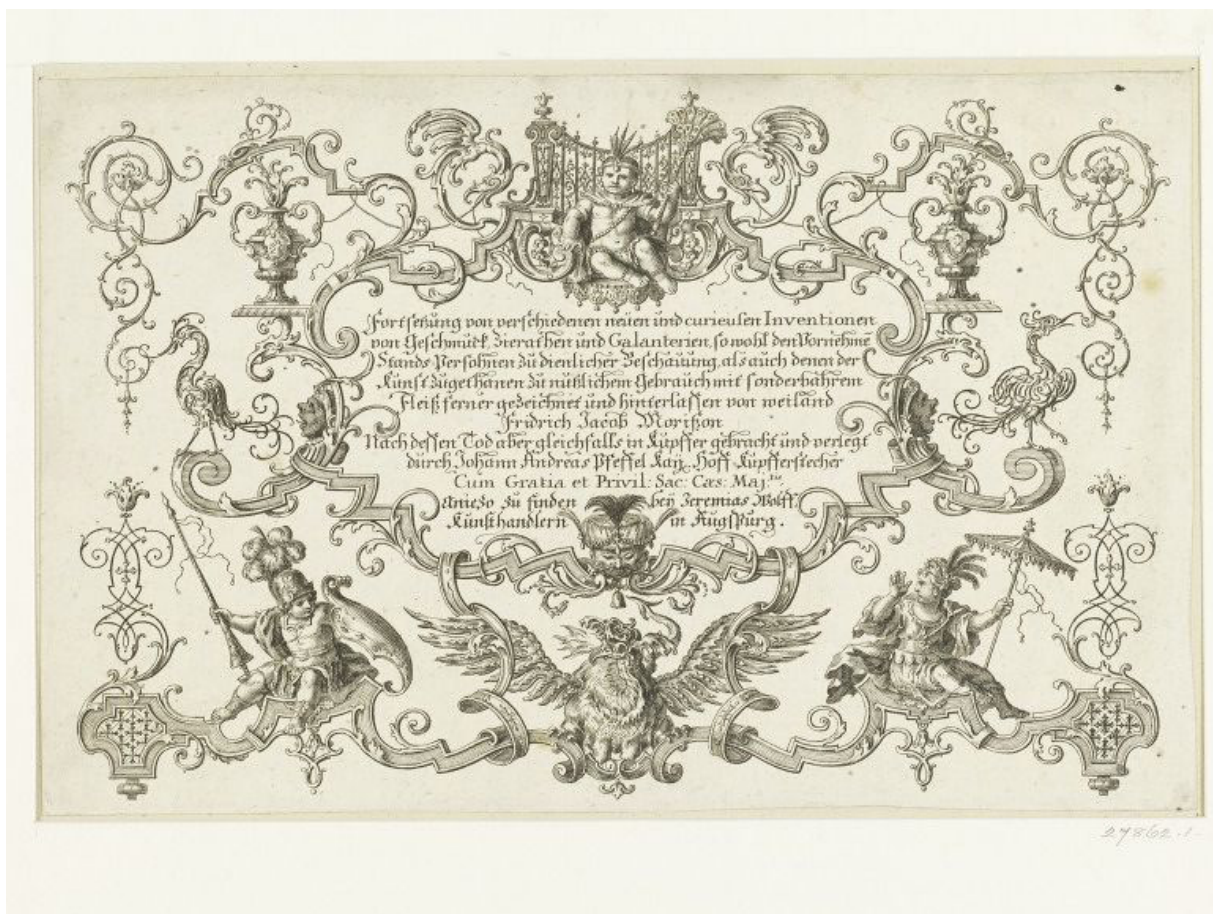 Fortsetzung von verschiedenen neüen und curieusen Inventionen
von Geschmuck, Zierathen und Galanterien, so wohl den Vornehmē
Stands-Persohnen zu dienlicher Beschauung, als auch denen der
Kunst zugethanen zu nützlichem Gebrauch mit sonderbahrem
Fleiß ferner gezeichnet und hinterlassen von weiland
Fridrich Jacob Morißon
Nach dessen Tod aber gleichfalls in Kupffer gebracht und verlegt
durch Johann Andreas Pfeffel Kay. Hoff-Kupfferstecher
Cum Gratia et Privil: Sac: Cæs: Maj:
Aniezo zu finden bey Jeremias Wolff
Kunsthandlern in Augspurg.
27862.1